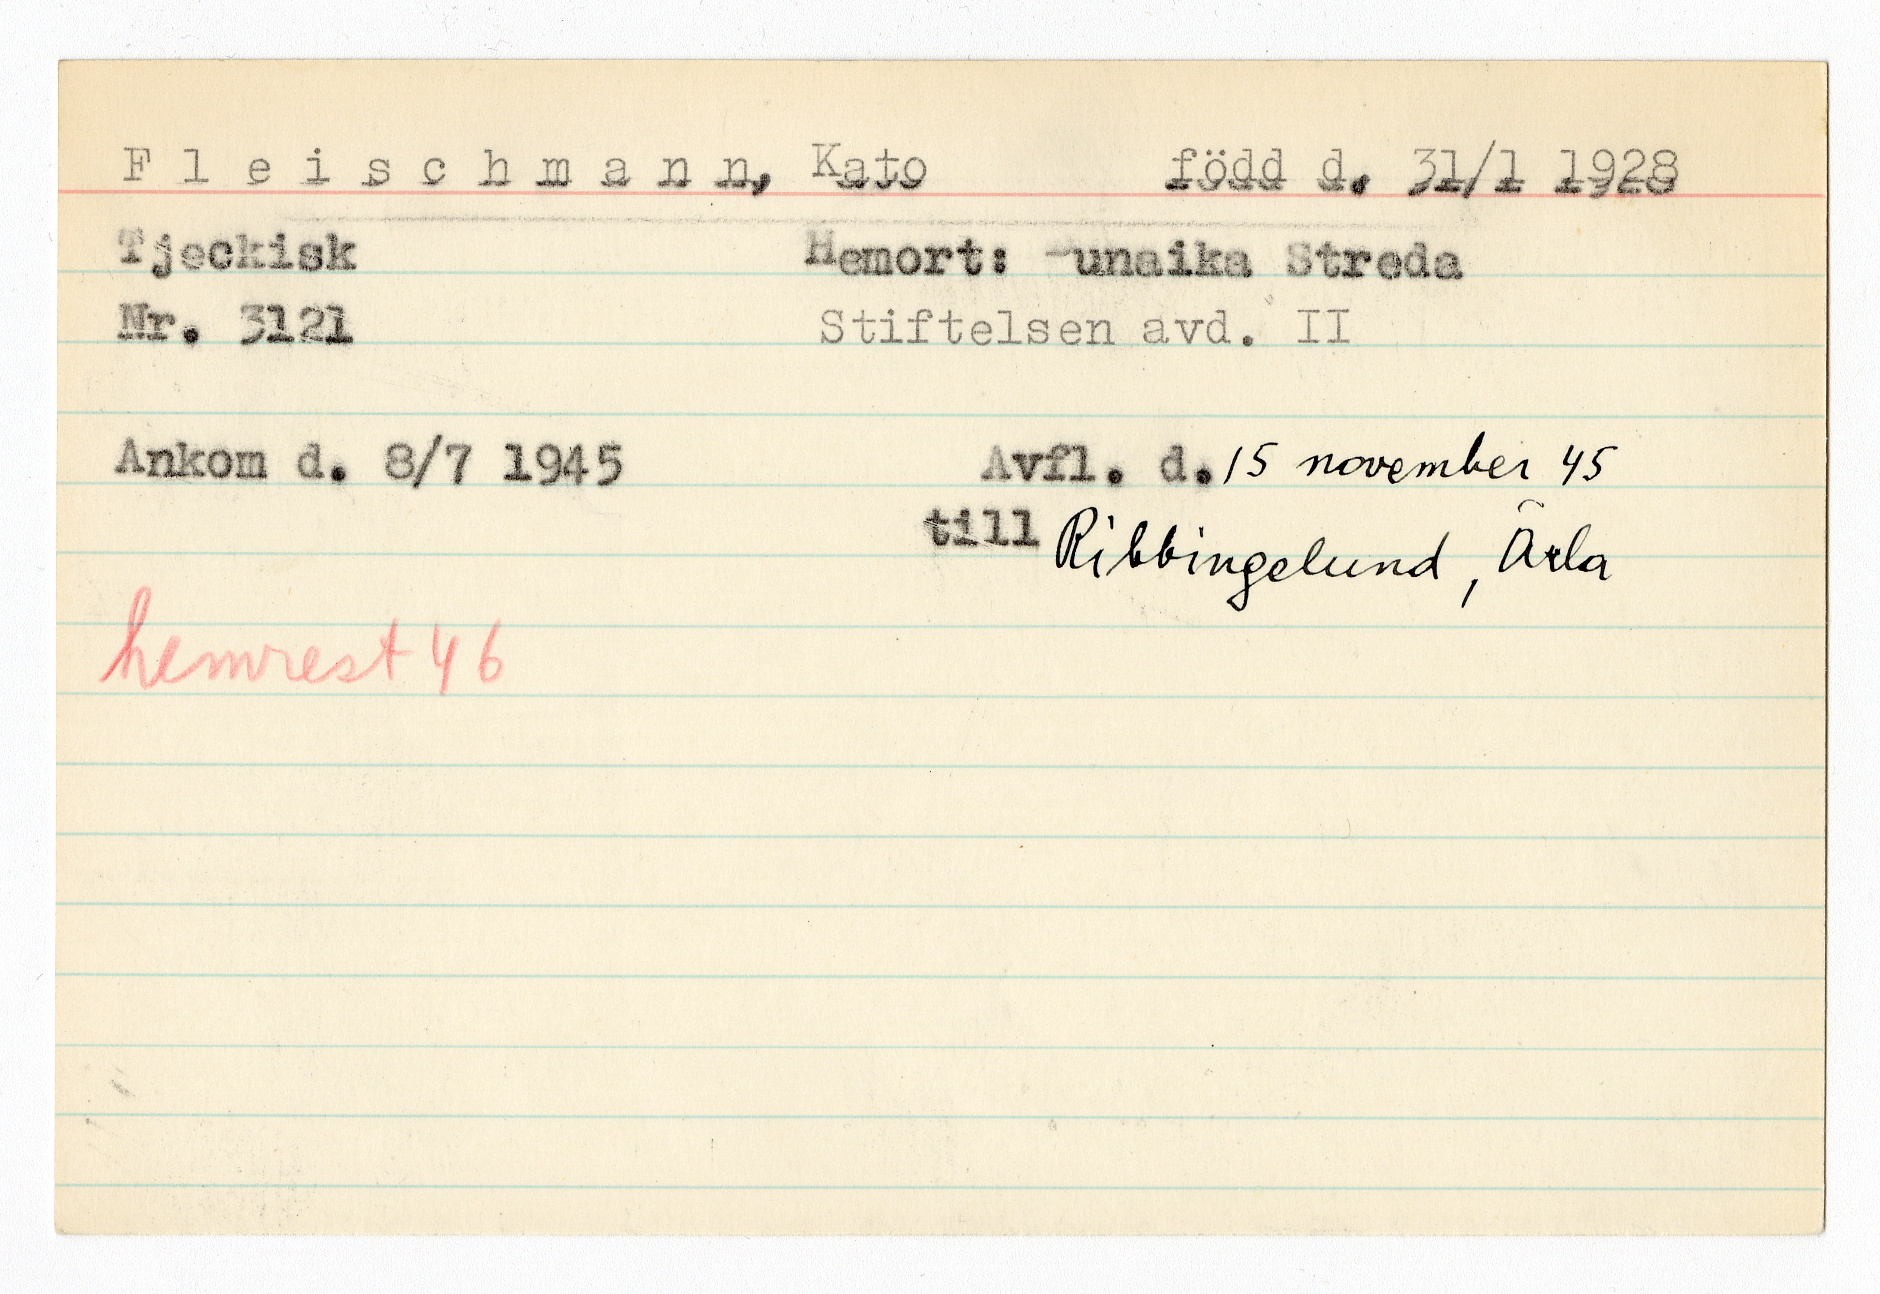 F l e i s c h m a n n, Kato född d. 31/1 1928
Tjeckisk Hemort: unaika Streda
Nr. 3121 Stiftelsen avd. II
Ankom d. 8/7 1945 Avfl. d. 15 november 45
till Ribbingelund, Ärla
hemrest 46